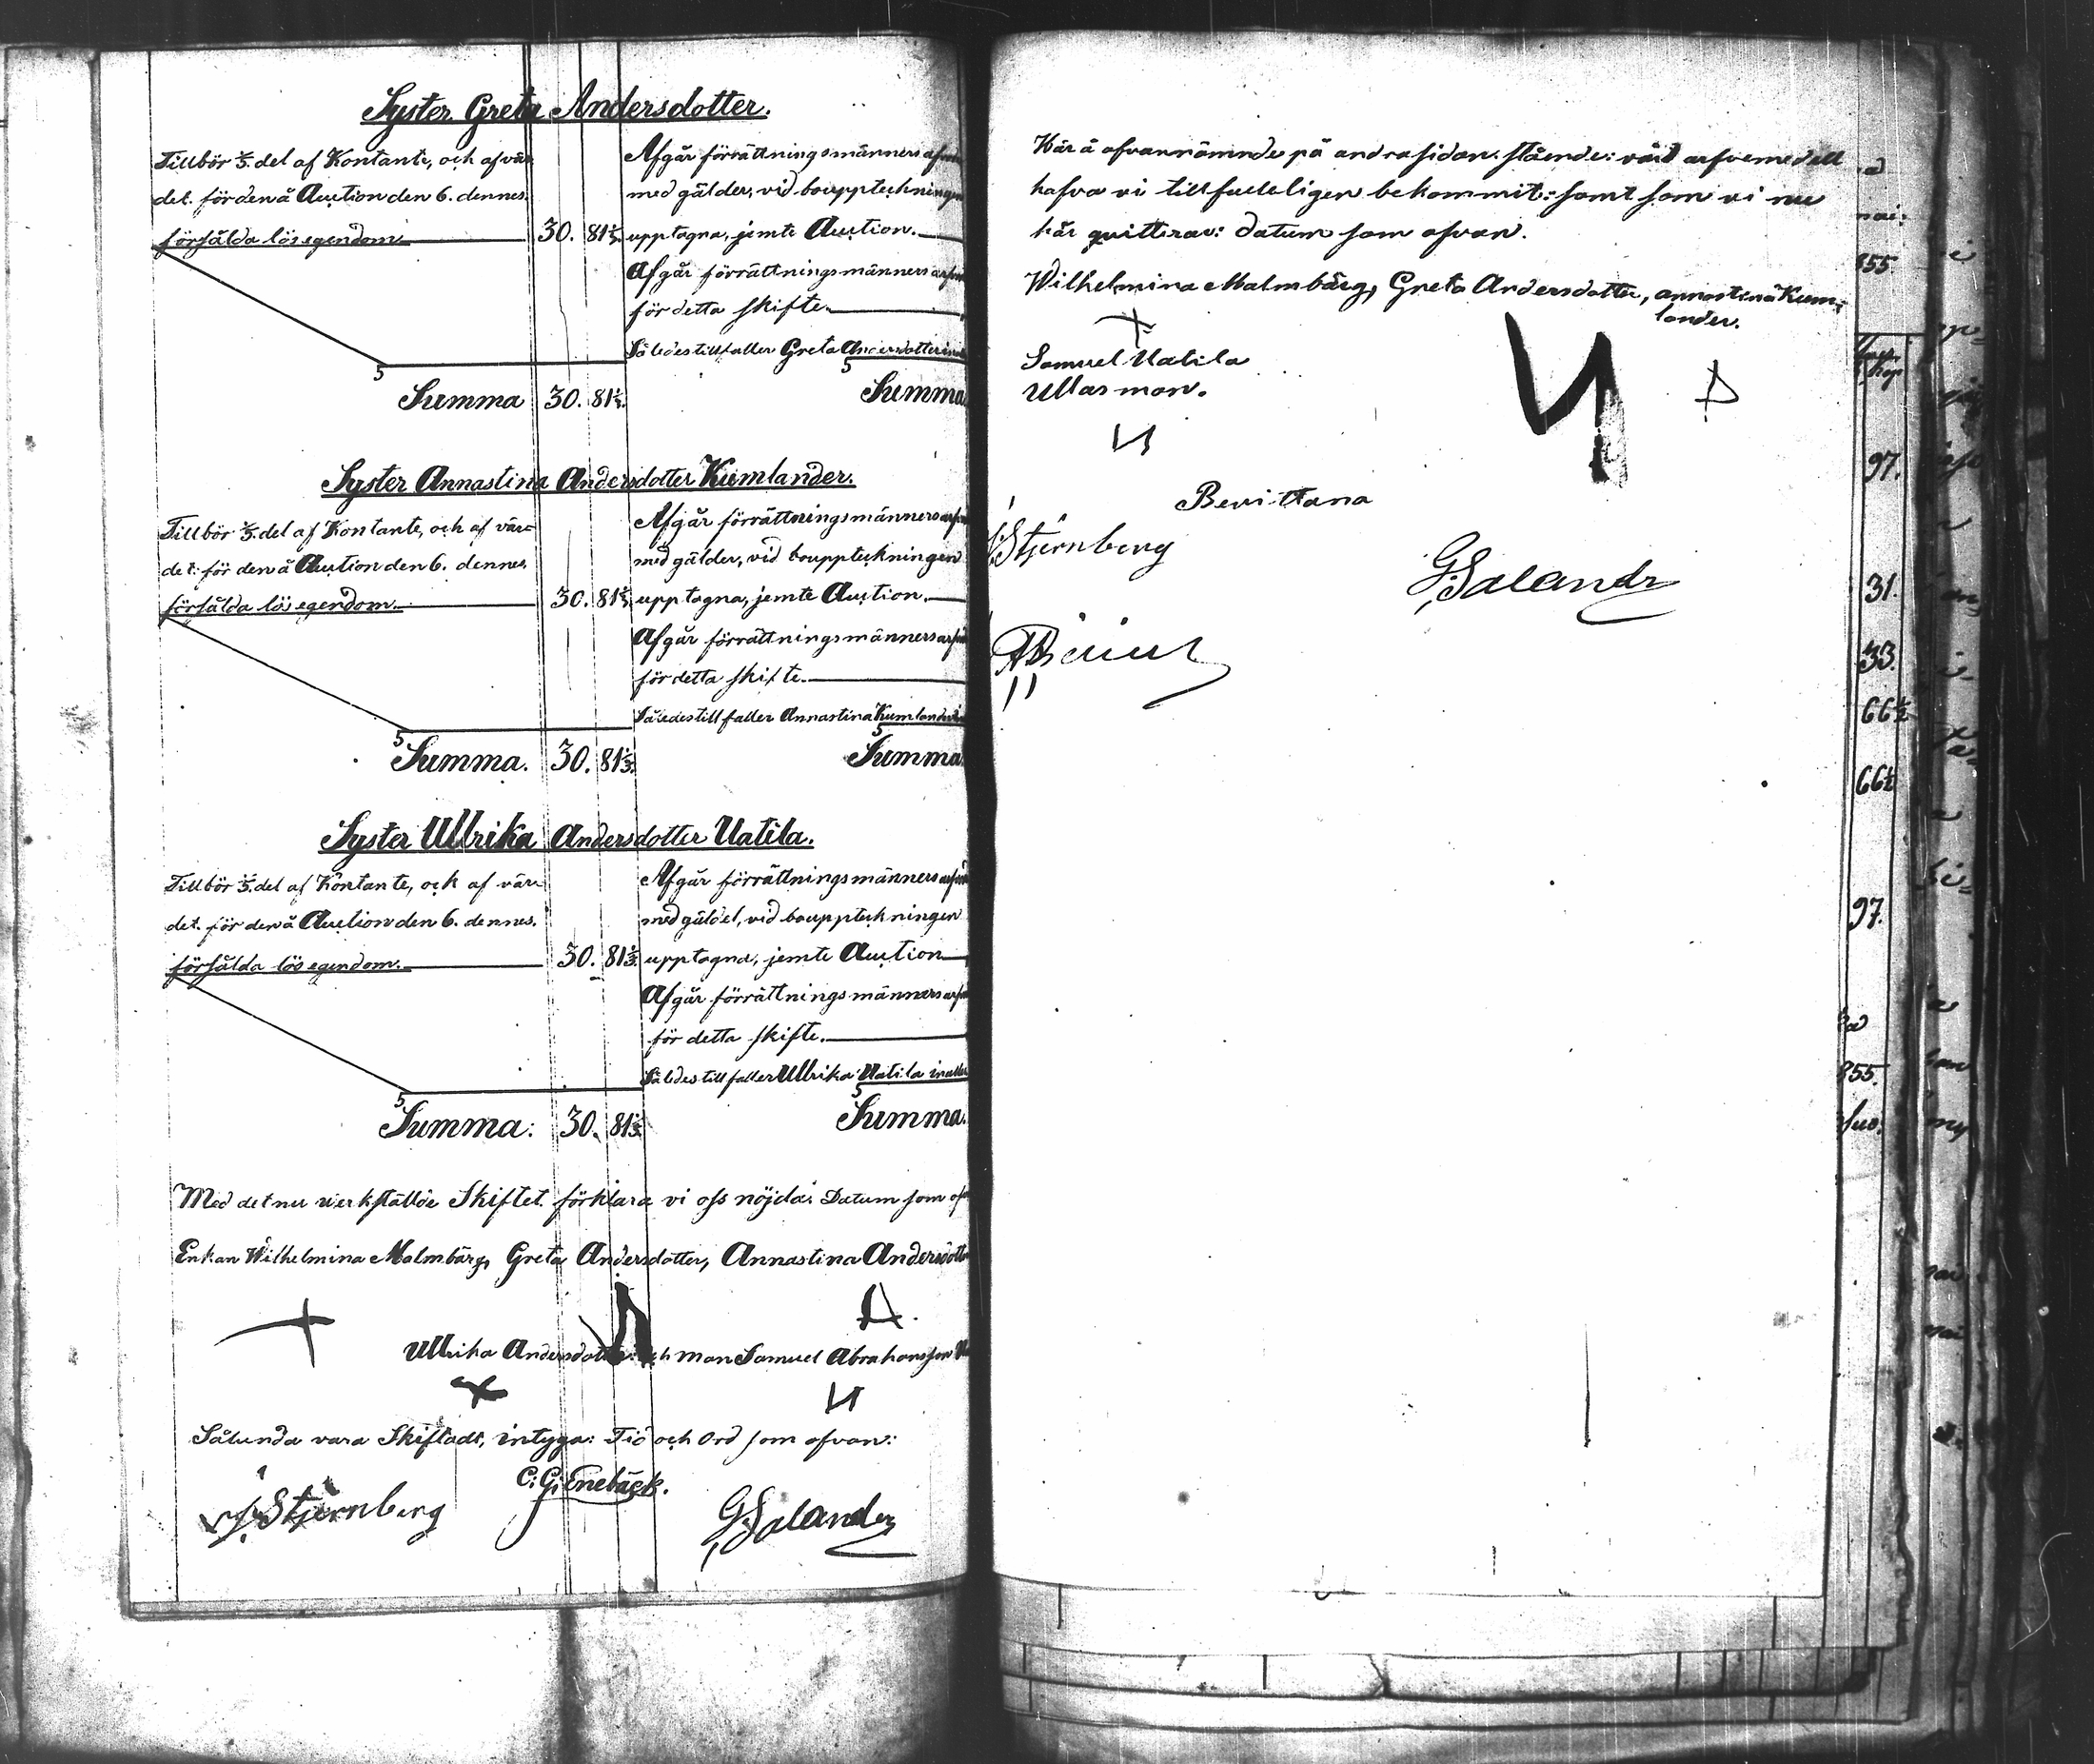 Syster Greta Andersdotter.
Tillhör ⅕ del af Kontante, och af vär-
det. för den å Auction den 6. dennes.
försålda lösegendom. 30. 81⅗.
Summa 30. 81⅗.
Afgår förrättningsmänners
med gälder, vid bouppteckningen
upptagna, jemte Auction.
Afgår förrättningsmänners
för detta skifte.
Således tillfaller Greta Andersdotter
Summa
Syster Annastina Andersdotter Kumlander.
Tillhör ⅕ del af Kontante, och af vär-
det: för den å Auction den 6. dennes.
försålda lösegendom. 30. 81⅗.
Summa. 30. 81⅗.
Afgår förrättningsmänners
med gälder, vid bouppteckningen
upptagna, jemte Auction.
Afgår förrättningsmänners
för detta skifte.
Således tillfaller Annastina Kumlander
Summa.
Syster Ullrika Andersdotter Uatila.
Tillhör ⅕ del af Kontante, och af vär-
det. för den å Auction den 6. dennes.
försålda lösegendom. 30. 81⅗.
Summa: 30. 81⅗.
Afgår förrättningsmänners
med gäldel, vid bouppteckningen
upptagna, jemte Auction
Afgår förrättningsmänners
för detta skifte.
Således tillfaller Ullrika Uatila
Summa.
Med det nu verkställde Skiftet. förklara vi oss nöjda: Datum som
Enkan Wilhelmina Malmbärg, Greta Andersdotter, Annastina Andersdotter
Ullrika och man Samuel Abrahamsson
Sålunda vara Skiftadt, intyga: Tid och Ord som ofvan:
Stjernberg C: G: Enebäck. G Salander
Här å ofvannämnde på andra sidan: stående: vård arfvemedell
hafva vi tillfulleligen bekommit: samt som vi nu
här quitterar: datum som ofvan.
Wilhelmina Malmbärg, Greta Andersdotter, annastina Kum-
lander.
Samuel Uatila
Ullas man.
Bevittna
Stjernberg
G Salandr
855
97.
31.
33.
66½
66½
97.
855.